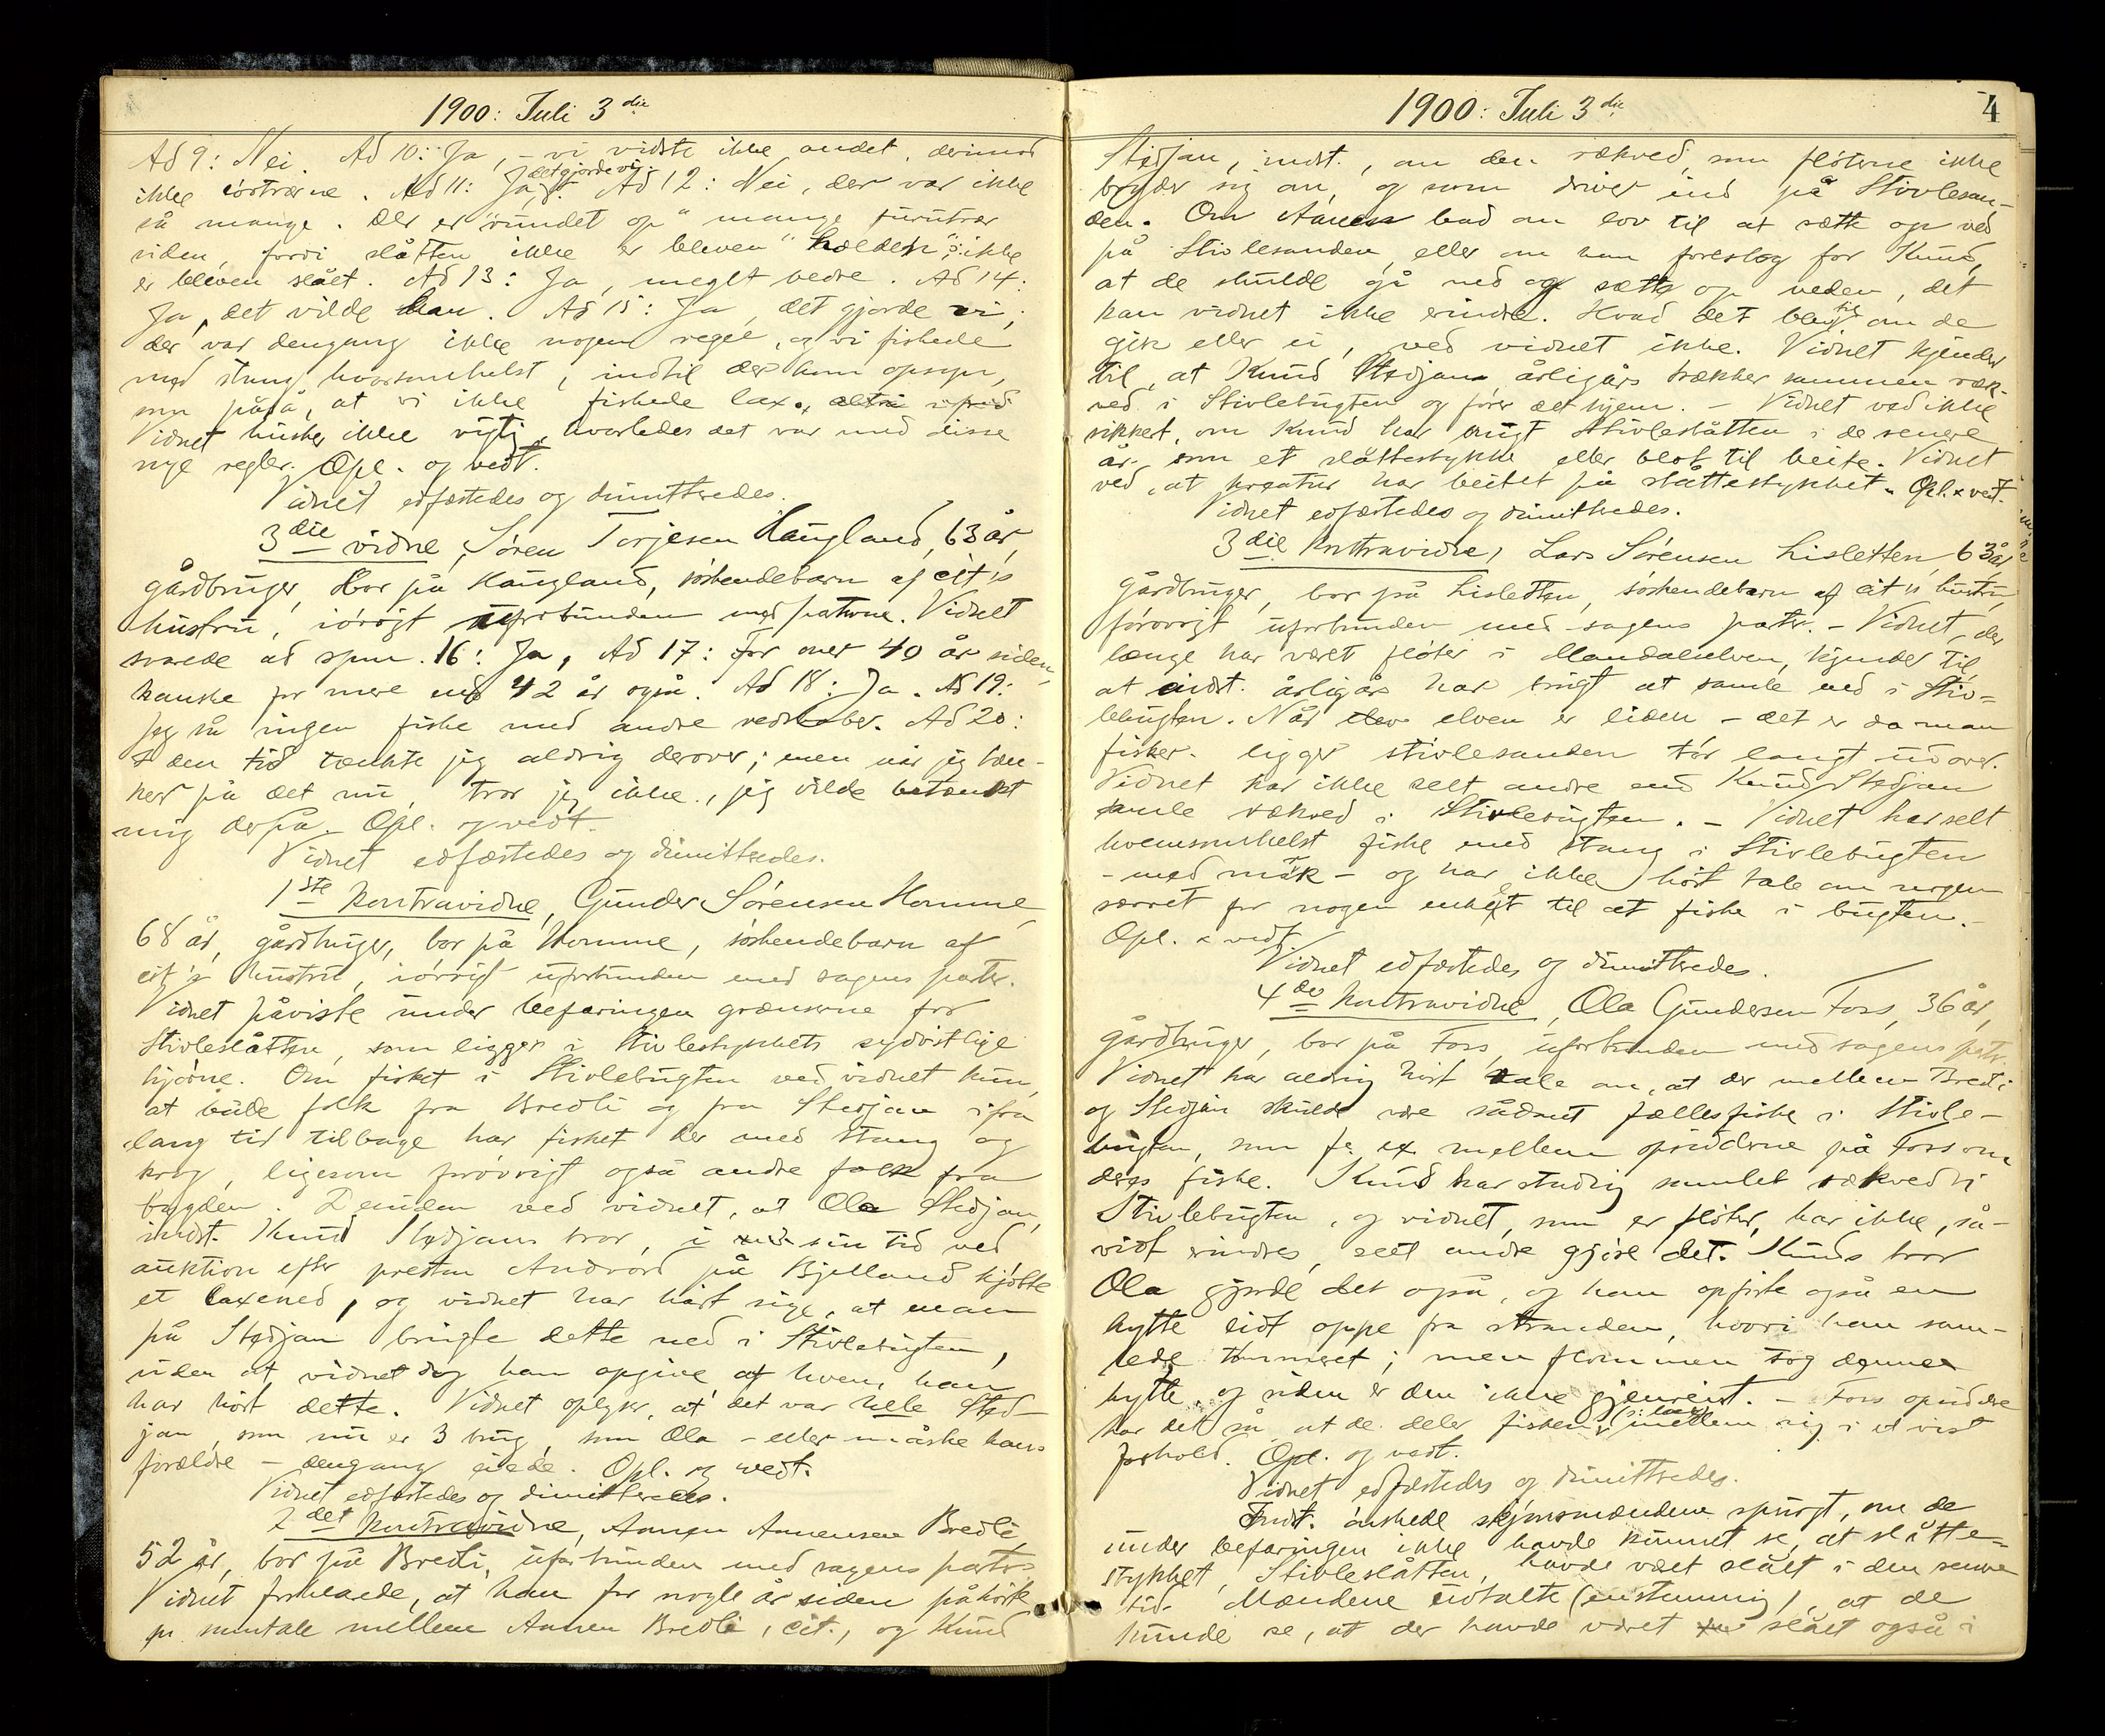 1900: Juli 3die
Ad 9: Nei. Ad 10: Ja, – vi vidste ikke andet, derimod
ikke lövtrærne. Ad 11: Ja, det gjorde vi. Ad 12: Nei, der var ikke
så mange. Der er "rundet op" mange furutrær
siden, fordi slåtten ikke er bleven "holden" ɔ: ikke
er bleven slået. Ad 13: Ja, meget bedre. Ad 14:
Ja, det vilde han. Ad 15: Ja, det gjorde vi;
der var dengang ikke nogen regel, og vi fiskede
med stang hvorsomhelst, indtil der kom opsyn,
som påså, at vi ikke fiskede lax.
Vidnet husker ikke rigtig, hvorledes det var med disse
nye regler. Opl. og vedt.
Vidnet edfæstedes og dimitteredes.
3die vidne, Sören Torjesen Haugland, 63 år,
gårdbruger, bor på Haugland, söskendebarn af cit's
hustru, iövrigt uforbunden med parterne. Vidnet
svarede ad spm. 16: Ja, Ad 17: For over 40 år siden,
kanske for mere end 42 år også. Ad 18: Ja. Ad 19:
Jeg så ingen fiske med andre redskaber. Ad 20:
I den tid tænkte jeg aldrig derover; men når jeg tæn-
ker på det nu, tror jeg ikke, jeg vilde betænkt
mig derpå. Opl. og vedt.
Vidnet edfæstedes og dimitteredes.
1ste kontravidne, Gunder Sörensen Homme,
68 år, gårdbruger, bor på Homme, söskendebarn af
cit's hustru, iövrigt uforbunden med sagens parter.
Vidnet påviste under befaringen grænserne for
Stivleslåtten, som ligger i Stivlestykkets sydöstlige
hjörne. Om fisket i Stivlebugten ved vidnet kun,
at både folk fra Bredli og fra Stedjan ifra
lang tid tilbage har fisket der med stang og
krog, ligesom forövrigt også andre folk fra
bygden. Desuden ved vidnet, at Ola Stedjan,
indst. Knud Stedjans bror, i sin tid ved
auktion efter presten på Bjelland kjöbte
et laxened, og vidnet har hört sige, at man
på Stedjan brugte dette ned i Stivlebugten,
uden at vidnet dog kan opgive af hvem han
har hört dette. Vidnet oplyser, at det var hele Sted-
jan, som nu er 3 brug, som Ola – eller måske hans
forældre – dengang eiede. Opl. og vedt.
Vidnet edfæstedes og dimitteredes.
2det kontravidne, Aanen Aanensen Bredli,
52 år, bor på Bredli, uforbunden med sagens parter.
Vidnet forklarede, at han for nogle år siden påhörte
en samtale mellem Aanen Bredli, cit., og Knud
1900: Juli 3die
4
Stedjan, indst., om den rækved, som flöterne ikke
bryder sig om, og som driver ind på Stivlesan-
den. Om Aanen bad om lov til at sætte op ved
på Stivlesanden, eller om han foreslog for Knud,
at de skulde gå ned og sætte op veden, det
kan vidnet ikke erindre. Hvad det blev til om de
gik eller ei, ved vidnet ikke. Vidnet kjender
til, at Knud Stedjan årligårs trækker sammen ræk-
ved i Stivlebugten og förer det hjem. – Vidnet ved ikke
sikkert, om Knud har brugt Stivleslåtten i de senere
år, som et slåttestykke eller blot til beite. Vidnet
ved, at kreatur har beitet på slåttestykket. Opl. & vedt.
Vidnet edfæstedes og dimitteredes.
3die kontravidne, Lars Sörensen Lisletten, 63 år,
gårdbruger, bor på Lisletten, söskendebarn af cit's hustru,
forövrigt uforbunden med sagens parter. – Vidnet, der
længe har været flöter i Mandalselven, kjender til,
at indst. årligårs har brugt at samle ved i Stiv-
lebugten. Når elven er liden – det er da man
fisker – ligger stivlesanden tör langt udover.
Vidnet har ikke seet andre end Knud Stedjan
samle rækved i Stivlebugten. – Vidnet har seet
hvemsomhelst fiske med stang i Stivlebugten
– med mak – og har ikke hört tale om nogen
særret for nogen enkelt til at fiske i bugten.
Opl. & vedt.
Vidnet edfæstedes og dimitteredes.
4de kontravidne, Ola Gundersen Foss, 36 år,
gårdbruger, bor på Foss, uforbunden med sagens parter.
Vidnet har aldrig hört tale om, at der mellem Bredli
og Stedjan skulde være sådant fællesfiske i Stivle-
bugten, som f. ex. mellem opsidderne på Foss om
deres fiske. Knud har stadig samlet rækved i
Stivlebugten, og vidnet, som er flöter, har ikke, så-
vidt erindres, seet andre gjöre det. Knuds bror
Ola gjorde det også, og han opförte også en
hytte lidt oppe fra stranden, hvori han sam-
lede tömmeret; men flommen tog denne
hytte, og siden er den ikke gjenreist. – Foss opsiddere
har det så, at de deler fisken (ɔ: laxen) mellem sig i et vist
forhold. Opl. og vedt.
Vidnet edfæstedes og dimitteredes.
Indst. önskede skjönsmændene spurgt, om de
under befaringen ikke havde kunnet se, at slåtte-
stykket, Stivleslåtten, havde været slået i den senere
tid. Mændene udtalte (enstemmig), at de
kunde se, at der havde været slået også i